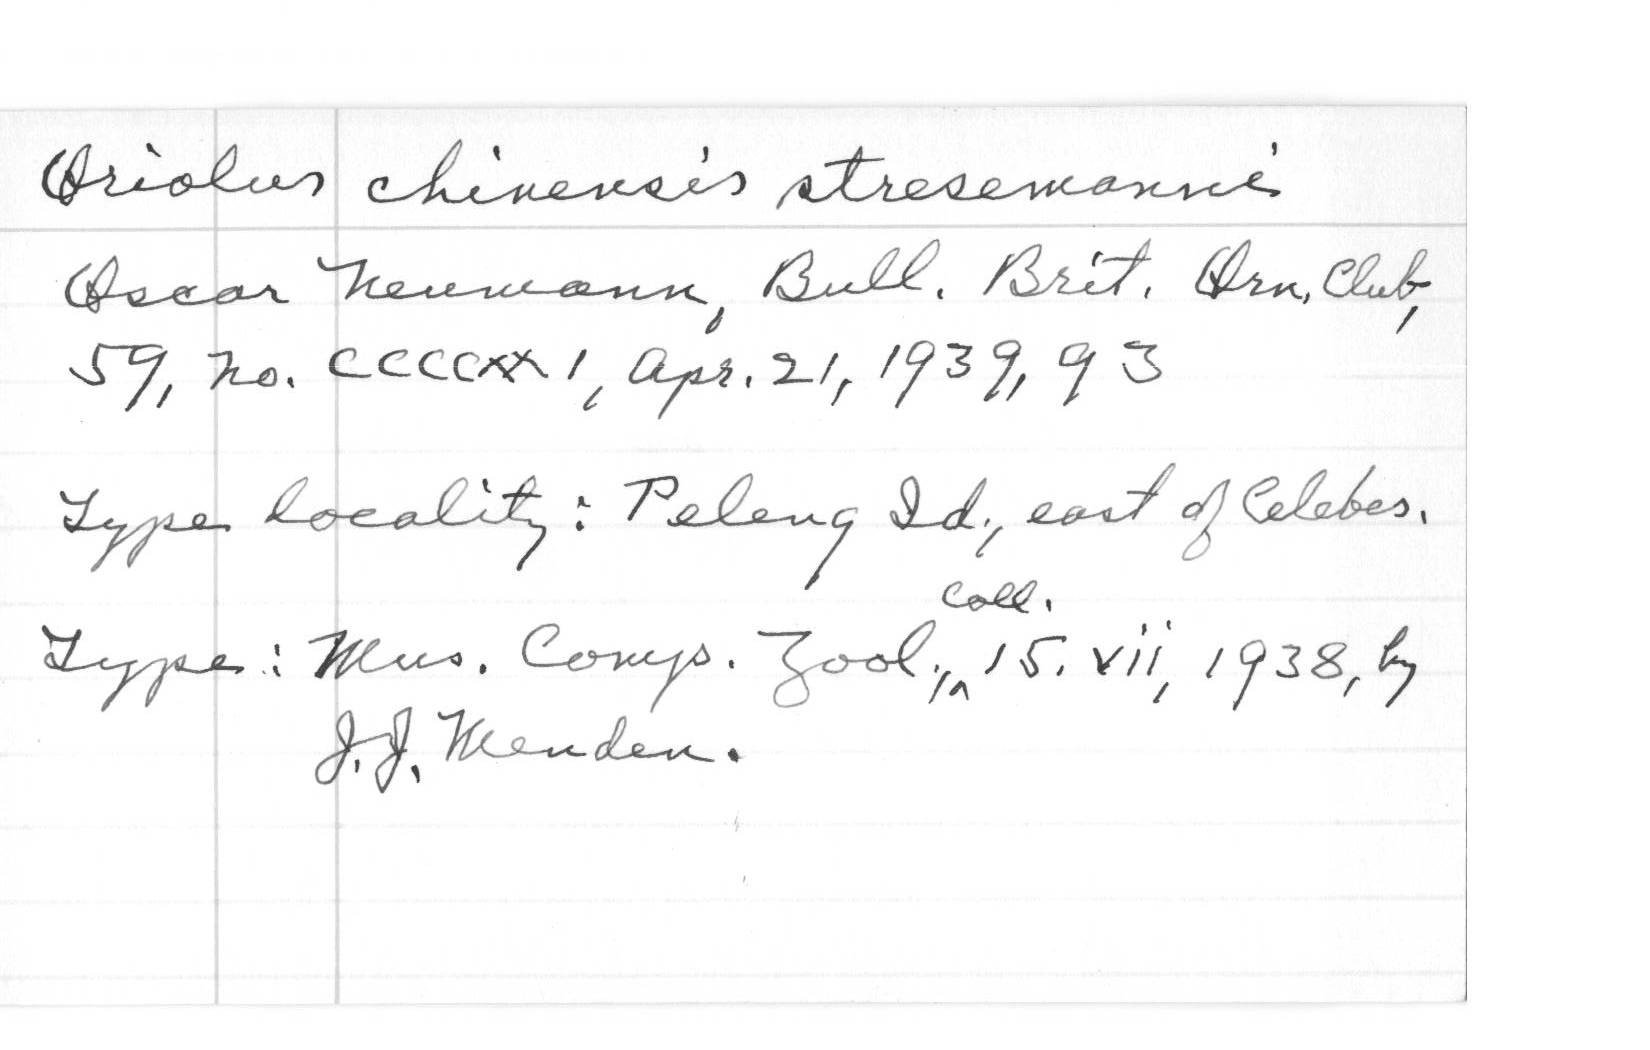 Oriolus chinensis stresemanni
Oscar Neumann, Bull. Brit. Orn. Club,
59, no. CCCCXX1, Apr. 21, 1939, 93
Type locality: Peleng Id., east of Celebes.
coll.
Type: Mus. Comp. Zool., ^ 15. vii, 1938, by
J. J. Menden.